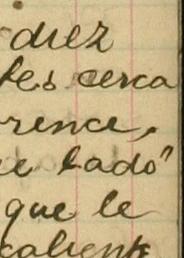 diez
tes cerca
rence,
e lado"
que le
caliente